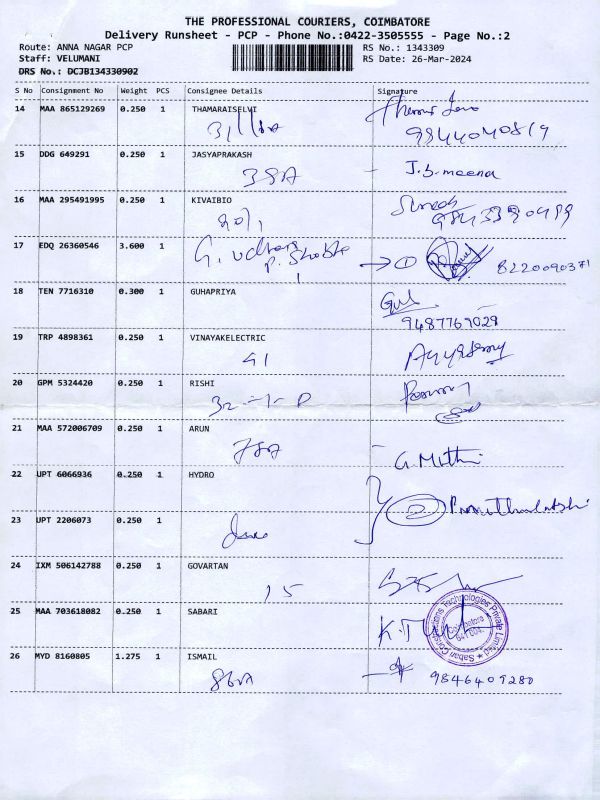 THE PROFESSIONAL COURIERS, COIMBATORE
Delivery Runsheet - PCP - Phone No.:0422-3505555 - Page No.:2
Route: ANNA NAGAR PCP RS No.: 1343309
Staff: VELUMANI RS Date: 26-Mar-2024
DRS No.: DCJB134330902
S No Consignment No Weight PCS Consignee Details Signature
14 MAA 865129269 0.250 1 THAMARAISELVI
9844040819
15 DDG 649291 0.250 1 JASYAPRAKASH
38A J.B. meena
16 MAA 295491995 0.250 1 KIVAIBIO
17 EDQ 26360546 3.600 1 G. udhaya
P. Shobha → 1 8220090371
18 TEN 7716310 0.300 1 GUHAPRIYA
9487769029
19 TRP 4898361 0.250 1 VINAYAKELECTRIC
41
20 GPM 5324420 0.250 1 RISHI
21 MAA 572006709 0.250 1 ARUN
78A G. Muthu
22 UPT 6066936 0.250 1 HYDRO
2
23 UPT 2206073 0.250 1
24 IXM 506142788 0.250 1 GOVARTAN
15
25 MAA 703618082 0.250 1 SABARI
Sabari Consultations Technologies Private Limited
Coimbatore
641 004.
26 MYD 8160805 1.275 1 ISMAIL
86A 9846409280